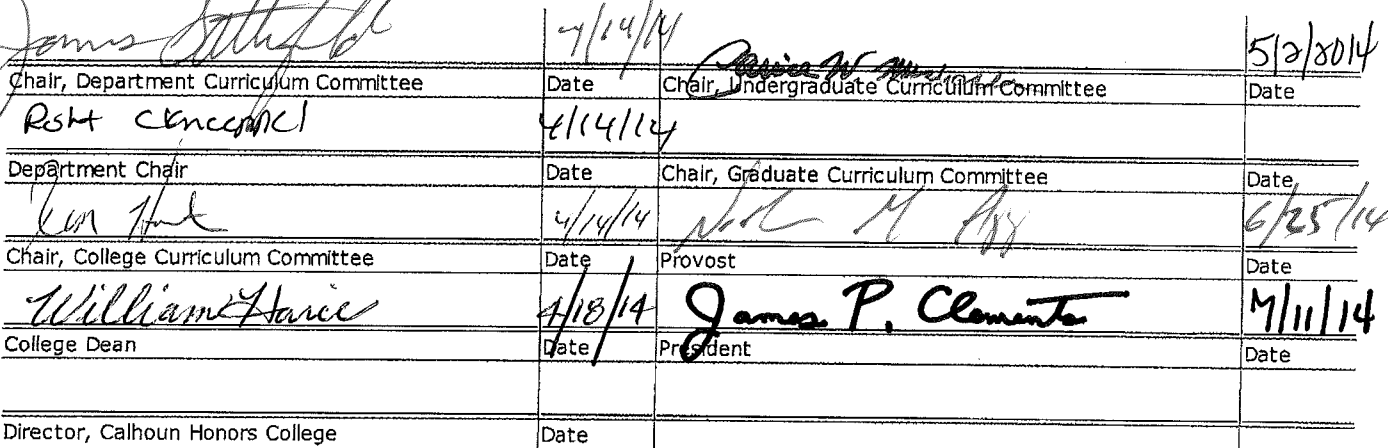 James 4/14/14 5/2/2014
Chair, Department Curriculum Committee Date Chair, Undergraduate Curriculum Committee Date
4/14/14
Department Chair Date Chair, Graduate Curriculum Committee Date
4/14/14 M 6/25/14
Chair, College Curriculum Committee Date Provost Date
William 4/18/14 James P. Clements 7/11/14
College Dean Date President Date
Director, Calhoun Honors College Date